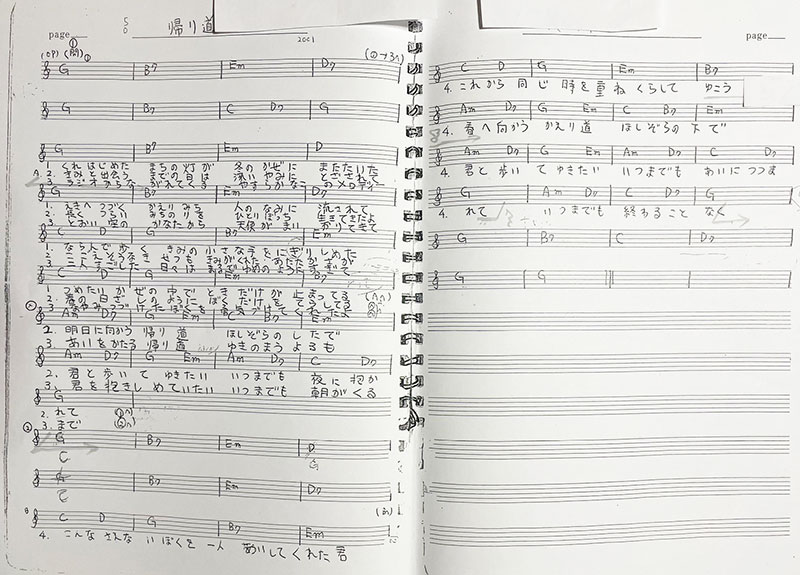 page
帰り道
2001
(OP)
G B7 Em D7
G B7 C D7 G
G B7 Em D
1. くれはじめた まちの灯が 冬のかぜに またたいた
2. きみと出会う までの日は 深いやみに とざされて
3. ラジオからな がれてくる やすらかなこ のメロディー
G B7 Em D7
1. えきへつづく かえりみち 人のなみに 流されて
2. 長くつらい みちのりを ひとりぼっち 生きてきたよ
3. とおい空の かなたから 天使がまい おりてきて
C D G B7 Em
1. ならんで歩く きみの小さな手を にぎりしめた
2.
3. 二人すごした 日々は まるでゆめのように すぎて
C D G Em B7
1. つめたい かぜの中で ときだけが 止まってる
2. 春の日ざ しのように ぼくだけを てらしてる
3.
Am D7 G Em C B7 Em
2. 明日に向かう 帰り道 ほしぞらの したで
3. あいをかたる 帰り道 ゆきのまうよるも
Am D7 G Em Am D7 C D7
2. 君と歩いて ゆきたい いつまでも 夜に抱か
3. 君を抱きし めていたい いつまでも 朝がくる
G
2. れて
3. まで
G B7 Em D
C G
B7 Em D7
C
C D G B7 Em
4. こんな さえない ぼくを 一人 あいしてくれた 君
page
C D G Em B7
4. これから 同じ 時を重ね くらして ゆこう
Am D7 G Em C B7 Em
4. 春へ向かう かえり道 ほしぞらの 下で
Am D7 G Em Am D7 C D7
4. 君と歩い て ゆきたい いつまでも あいにつつま
G Am D7 C D7 G
4. れて いつまでも 終わること なく
G B7 C D7
G G